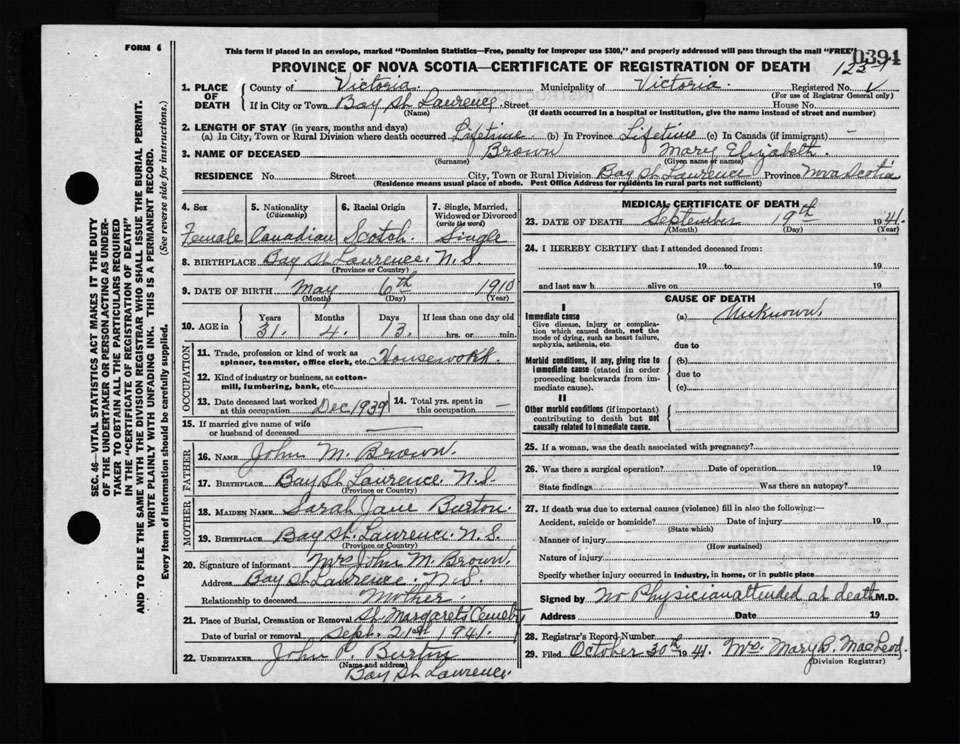 FORM 6
This form if placed in an envelope, marked "Dominion Statistics—Free, penalty for improper use $300," and properly addressed will pass through the mail "FREE"
0391
PROVINCE OF NOVA SCOTIA—CERTIFICATE OF REGISTRATION OF DEATH
1. PLACE OF DEATH
County of Victoria. Municipality of Victoria. Registered No.
(For use of Registrar General only)
If in City or Town Bay St Laurence Street House No.
(Name) (If death occurred in a hospital or institution, give the name instead of street and number)
2. LENGTH OF STAY (in years, months and days)
(a) In City, Town or Rural Division where death occurred Lifetime (b) In Province Lifetime (c) In Canada (if immigrant) —
3. NAME OF DECEASED Brown Mary Elizabeth.
(Surname) (Given name or names)
RESIDENCE No. Street City, Town or Rural Division Bay St. Laurence Province Nova Scotia
(Residence means usual place of abode. Post Office Address for residents in rural parts not sufficient)
4. Sex 5. Nationality (Citizenship) 6. Racial Origin 7. Single, Married, Widowed or Divorced (write the word)
Female Canadian Scotch. Single
8. BIRTHPLACE Bay St Laurence. N.S.
(Province or Country)
9. DATE OF BIRTH May 6th 1910
(Month) (Day) (Year)
10. AGE in Years Months Days If less than one day old
31. 4. 13. hrs. or min.
OCCUPATION
11. Trade, profession or kind of work as spinner, teamster, office clerk, etc. Housework
12. Kind of industry or business, as cotton-mill, lumbering, bank, etc.
13. Date deceased last worked at this occupation Dec 1939 14. Total yrs. spent in this occupation —
15. If married give name of wife or husband of deceased
FATHER
16. NAME John M. Brown.
17. BIRTHPLACE Bay St. Laurence. N.S.
(Province or Country)
MOTHER
18. MAIDEN NAME Sarah Jane Burton.
19. BIRTHPLACE Bay St. Laurence N.S.
(Province or Country)
20. Signature of informant Mrs John M. Brown.
Address Bay St Laurence. N.S.
Relationship to deceased Mother.
21. Place of Burial, Cremation or Removal St Margarets
Date of burial or removal Sept. 21st 1941.
22. UNDERTAKER John P. Burton
(Name and address)
Bay St. Laurence.
MEDICAL CERTIFICATE OF DEATH
23. DATE OF DEATH September 19th 1941.
(Month) (Day) (Year)
24. I HEREBY CERTIFY that I attended deceased from:
19 to 19
and last saw h alive on 19
CAUSE OF DEATH
I
Immediate cause (a) Unknown.
Give disease, injury or complication which caused death, not the mode of dying, such as heart failure, asphyxia, asthenia, etc.
due to
Morbid conditions, if any, giving rise to immediate cause (stated in order proceeding backwards from immediate cause).
(b)
due to
(c)
II
Other morbid conditions (if important) contributing to death but not causally related to immediate cause.
25. If a woman, was the death associated with pregnancy?
26. Was there a surgical operation? Date of operation 19
State findings Was there an autopsy?
27. If death was due to external causes (violence) fill in also the following:—
Accident, suicide or homicide? Date of injury 19
(State which)
Manner of injury
(How sustained)
Nature of injury
Specify whether injury occurred in industry, in home, or in public place
Signed by No Physician attended at death M.D.
Address Date 19
28. Registrar's Record Number
29. Filed October 30th 1941. Mrs. Mary B. MacLeod.
(Division Registrar)
SEC. 46—VITAL STATISTICS ACT MAKES IT THE DUTY
OF THE UNDERTAKER OR PERSON ACTING AS UNDER-
TAKER TO OBTAIN ALL THE PARTICULARS REQUIRED
IN THE "CERTIFICATE OF REGISTRATION OF DEATH"
AND TO FILE THE SAME WITH THE DIVISION REGISTRAR WHO SHALL ISSUE THE BURIAL PERMIT.
WRITE PLAINLY WITH UNFADING INK. THIS IS A PERMANENT RECORD.
Every item of information should be carefully supplied. (See reverse side for instructions.)